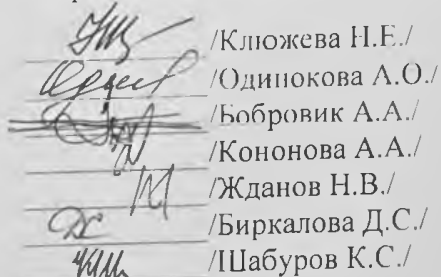 /Клюжева Н.Е./
/Одинокова А.О./
/Бобровик А.А./
/Кононова А.А./
/Жданов Н.В./
/Биркалова Д.С./
/Шабуров К.С./